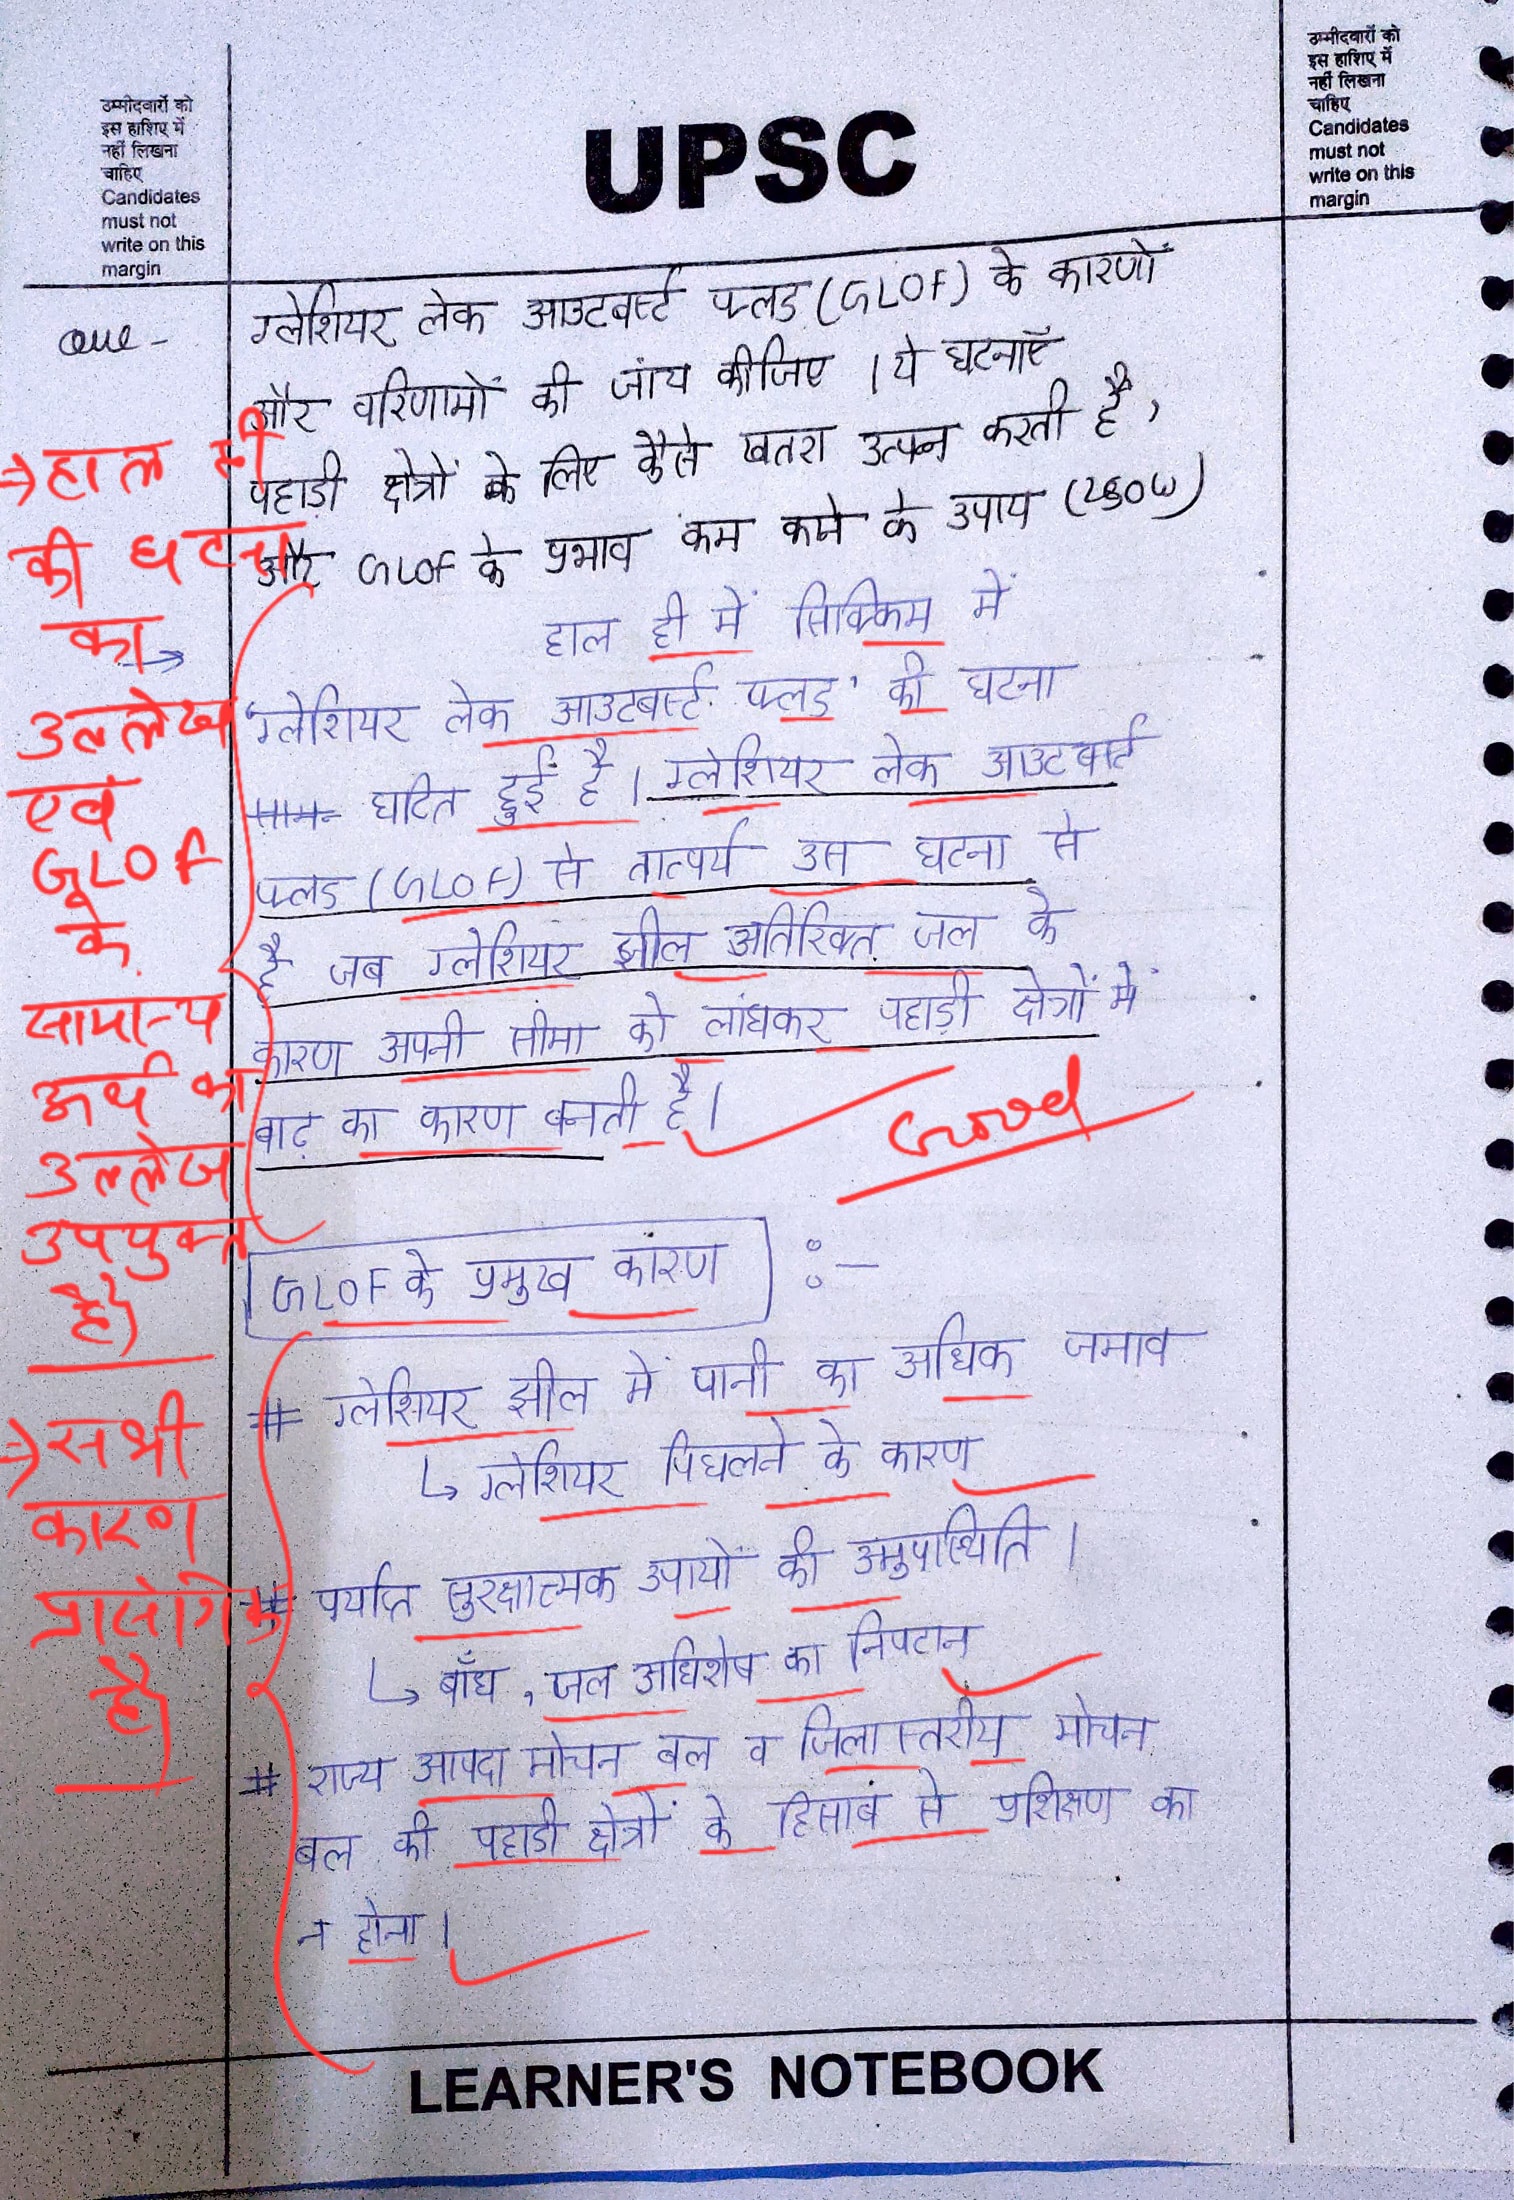 उम्मीदवारों को
इस हाशिए में
नहीं लिखना
चाहिए
Candidates
must not
write on this
margin
UPSC
उम्मीदवारों को
इस हाशिए में
नहीं लिखना
चाहिए
Candidates
must not
write on this
margin
Que -
ग्लेशियर लेक आउटबर्स्ट फ्लड (GLOF) के कारणों
और परिणामों की जांच कीजिए । ये घटनाएँ
पहाड़ी क्षेत्रों के लिए कैसे खतरा उत्पन्न करती है,
और GLOF के प्रभाव कम करने के उपाय (250W)
हाल ही में सिक्किम में
'ग्लेशियर लेक आउटबर्स्ट फ्लड' की घटना
घटित हुई है । ग्लेशियर लेक आउटबर्स्ट
फ्लड (GLOF) से तात्पर्य उस घटना से
है जब ग्लेशियर झील अतिरिक्त जल के
कारण अपनी सीमा को लांघकर पहाड़ी क्षेत्रों में
बाढ़ का कारण बनती है ।
Good
GLOF के प्रमुख कारण :-
# ग्लेशियर झील में पानी का अधिक जमाव
↳ ग्लेशियर पिघलने के कारण
# पर्याप्त सुरक्षात्मक उपायों की अनुपस्थिति ।
↳ बाँध , जल अधिशेष का निपटान
# राज्य आपदा मोचन बल व जिलास्तरीय मोचन
बल की पहाडी क्षेत्रों के हिसाब से प्रशिक्षण का
न होना ।
→ हाल ही
की घटना
का →
उल्लेख
एवं
GLOF
के
सामान्य
अर्थ का
उल्लेख
उपयुक्त
है।
→ सभी
कारण
प्रासंगिक
है।
LEARNER'S NOTEBOOK